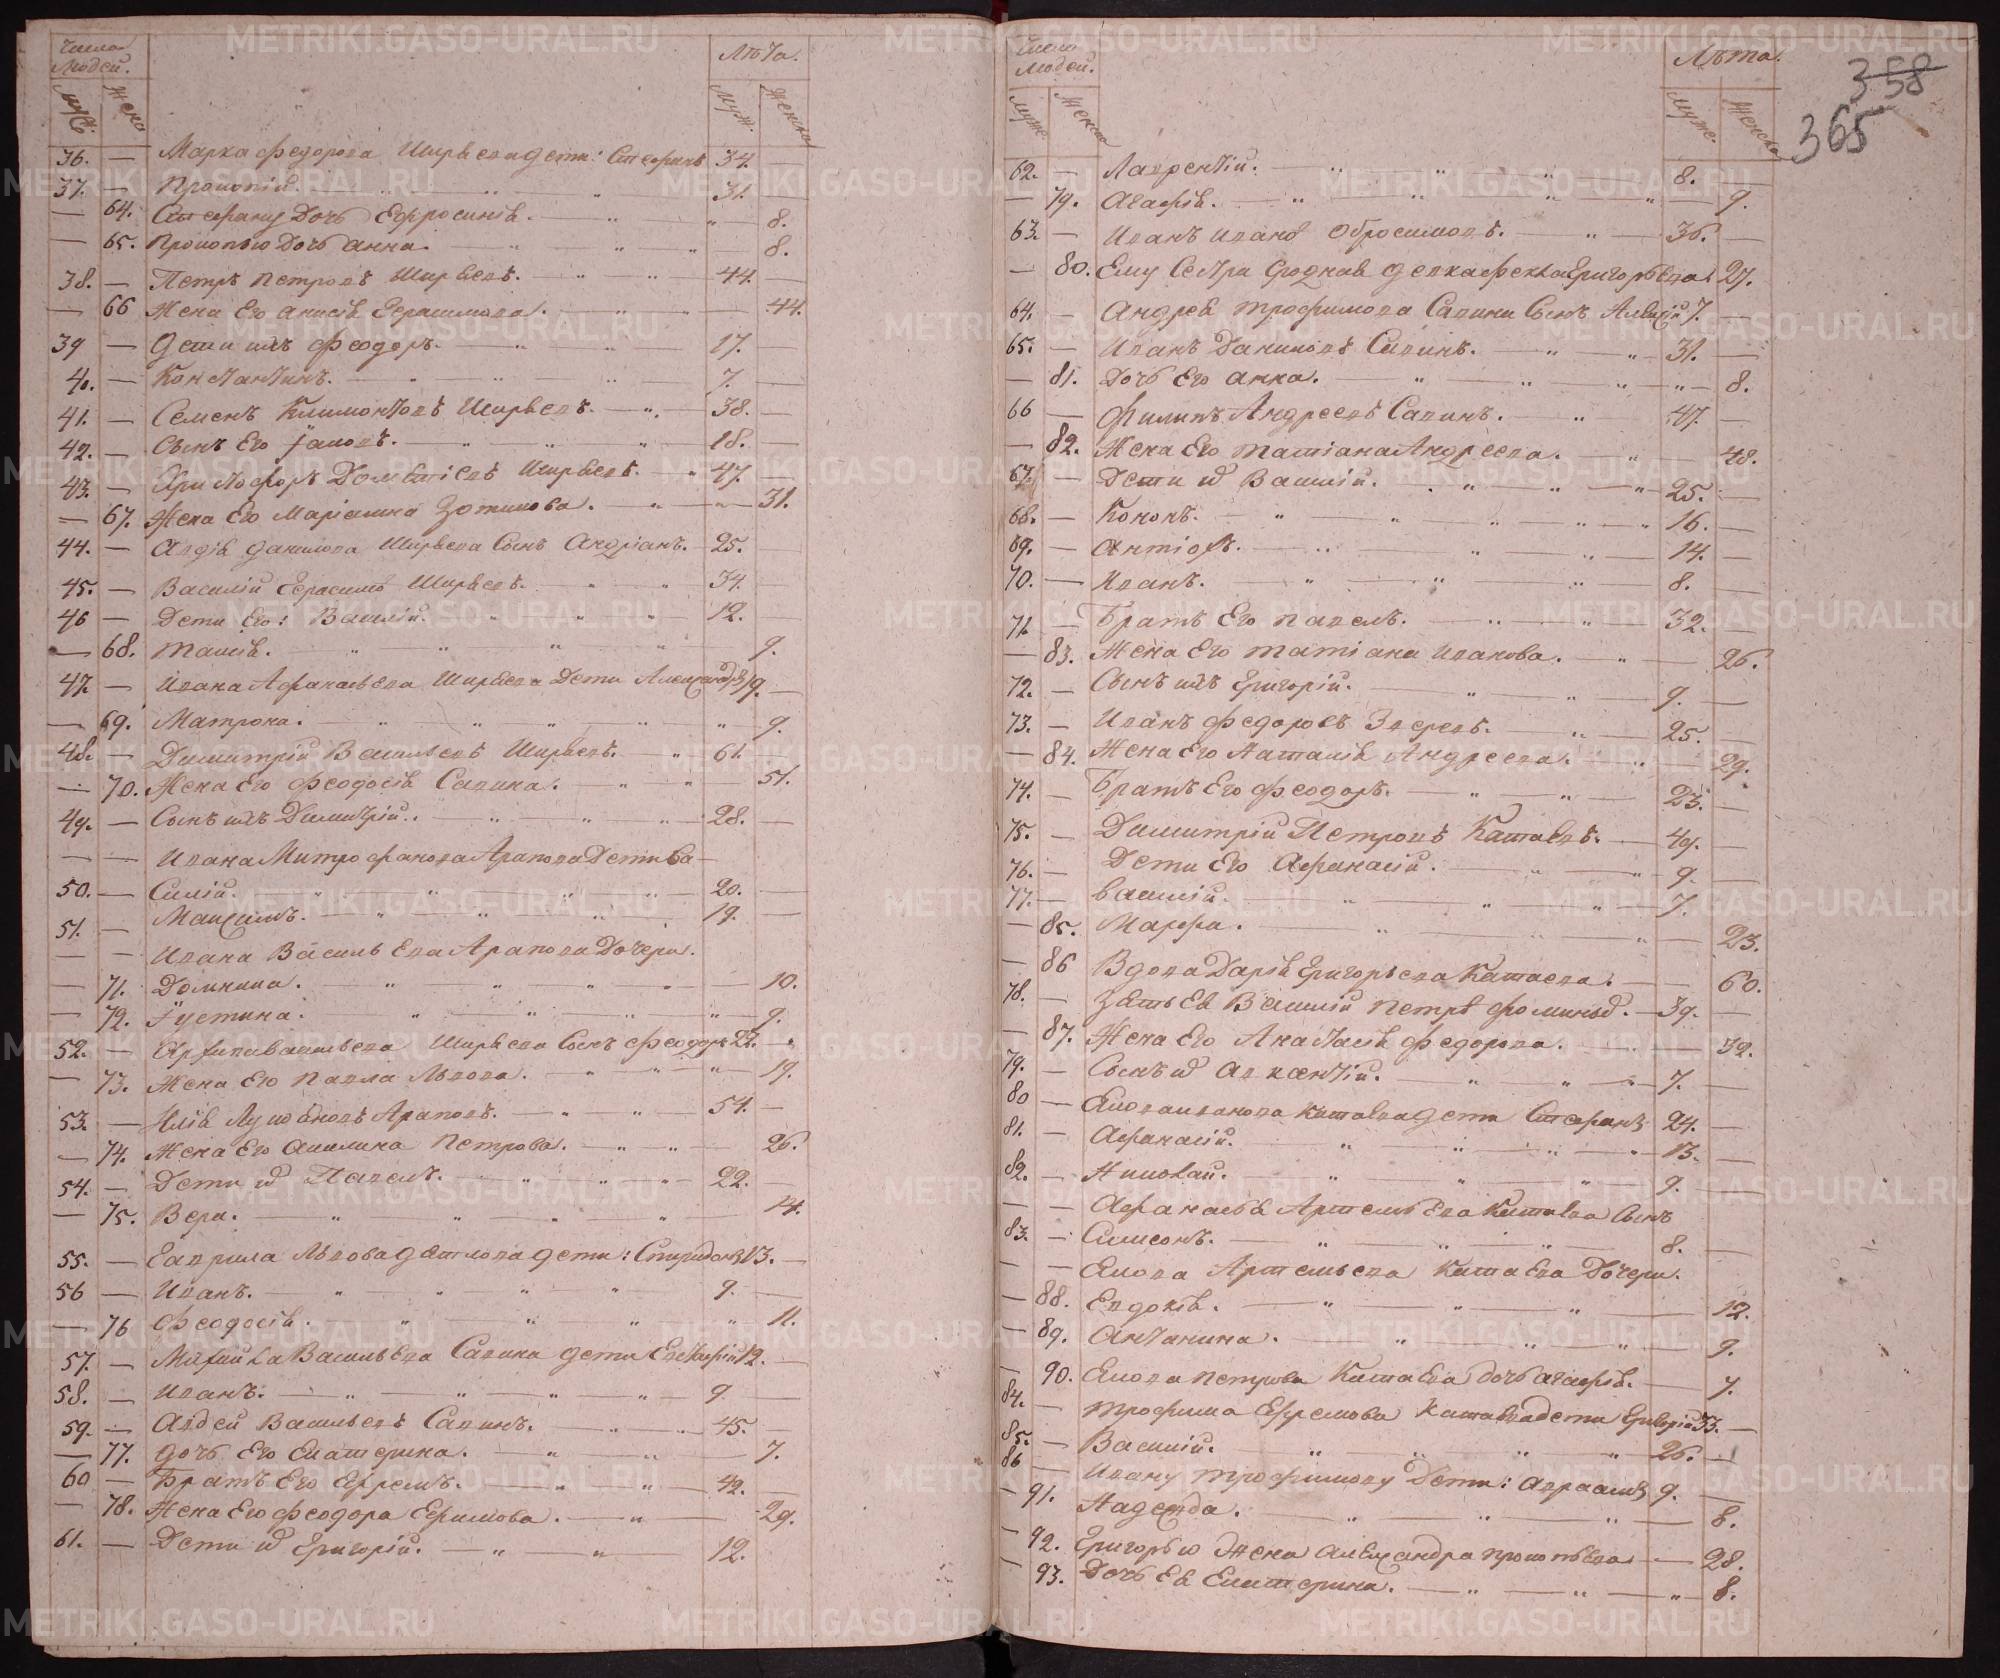 Число Людей.
Муж. Женск.
Лѣта.
Муж. Женска
36. — Марка Федорова Ширяева дети: Стефанъ 34. —
37. — Прокопій. 31. —
— 64. Стефану Дочь Ефросинія. 8.
— 65. Прокопью Дочь Анна. 8.
38. — Петръ Петровъ Ширяевъ. 44. —
— 66 Жена Его Анисія Герасимова. 44.
39 — Дети ихъ Феодоръ. 17. —
40. — Константинъ. 7. —
41. — Семенъ Климонтовъ Ширяевъ. 38. —
42. — Сынъ Его Іаковъ. 18. —
43. — Христофоръ Дометіевъ Ширяевъ. 47. —
— 67. Жена Его Маріамна Зотикова. 31.
44. — Авдія Данилова Ширяева Сынъ Андріанъ. 25. —
45. — Василій Герасимъ Ширяевъ. 34. —
46 — Дети Его: Василій. 12. —
— 68. Таисія. 9.
47. — Ивана Афанасьева Ширяева Дети Александръ 19. —
— 69. Матрона. 9.
48. — Димитрій Васильевъ Ширяевъ. 61. —
— 70. Жена Его Феодосія Савина. 51.
49. — Сынъ ихъ Димитрій. 28. —
— — Ивана Митрофанова Арапова Дети Ва
50. — Силій. 20. —
51. — Максимъ. 19. —
— — Ивана Васильева Арапова Дочери.
— 71. Домнина. 10.
— 72. Іустина. 9.
52. — Архипа Васильева Ширяева Сынъ Феодоръ 22. —
— 73. Жена Его Павла Львова. 19.
53. — Илія Лукояновъ Араповъ. 54. —
— 74. Жена Его Акилина Петрова. 26.
54. — Дети их Павелъ. 22. —
— 75. Вера. 14.
55. — Гаврила Львова Дятлова дети: Спиридонъ 13. —
56 — Иванъ. 9. —
— 76 Феодосія. 11.
57. — Михайла Васильева Савина дети Евстафій 12. —
58. — Иванъ. 9 —
59. — Авдей Васильевъ Савинъ. 45. —
— 77. Дочь Его Екатерина. 7.
60 — Братъ Его Ефремъ. 42. —
— 78. Жена Его Феодора Ефимова. 29.
61. — Дети их Григорій. 12.
Число Людей.
Муже. Женско
Лѣта.
Муже. Женско
358
365
62. — Лаврентій. 8. —
— 79. Агафія. 9.
63. — Иванъ Иванов Обросимовъ. 36. —
— 80. Ему Сестра сродная девка Фекла Григорьева 27.
64. — Андрея Трофимова Савина Сынъ Алексій 7. —
65. — Иванъ Даниловъ Савинъ. 31. —
— 81. Дочь Его Анна. 8.
66 — Филипъ Андреевъ Савинъ. 47. —
— 82. Жена Его Татіана Андреева. 48.
67. — Дети их Василій. 25. —
68. — Кононъ. 16. —
69. — Антіохъ. 14. —
70. — Иванъ. 8. —
71. — Братъ Его Павелъ. 32. —
— 83. Жена Его Татіана Иванова. 26.
72. — Сынъ ихъ Григорій. 9. —
73. — Иванъ Федоровъ Зверевъ. 25. —
— 84. Жена Его Наталія Андреева. 29.
74. — Братъ Его Феодоръ. 23. —
75. — Димитрій Петровъ Катаевъ. 49. —
76. — Дети Его Афанасій. 9. —
77. — Василій. 7. —
— 85. Марфа. 23.
— 86 Вдова Дарія Григорьева Катаева. 60.
78. — Зять Ея Василій Петръ Фоминых. 39. —
— 87. Жена Его Анастасія Федорова. 32.
79. — Сынъ их Авксентій. 7. —
80 — Якова Иванова Катаева дети Стефанъ 24. —
81. — Афанасій. 13. —
82. — Николай. 9. —
— — Афанасья Артемьева Катаева Сынъ
83. — Симеонъ. 8. —
— — Якова Артемьева Катаева Дочери.
— 88. Евдокія. 12.
— 89. Антонина. 9.
— 90. Якова Петрова Катаева дочь Агафія. 7.
84. — Трофима Ефремова Катаева дети Григорій 33. —
85. — Василій. 26. —
86 — Ивану Трофимову Дети: Авраамъ 9. —
— 91. Надежда. 8.
— 92. Григорью Жена Александра Прокопьева 28.
— 93. Дочь Ея Екатерина. 8.
METRIKI.GASO-URAL.RU